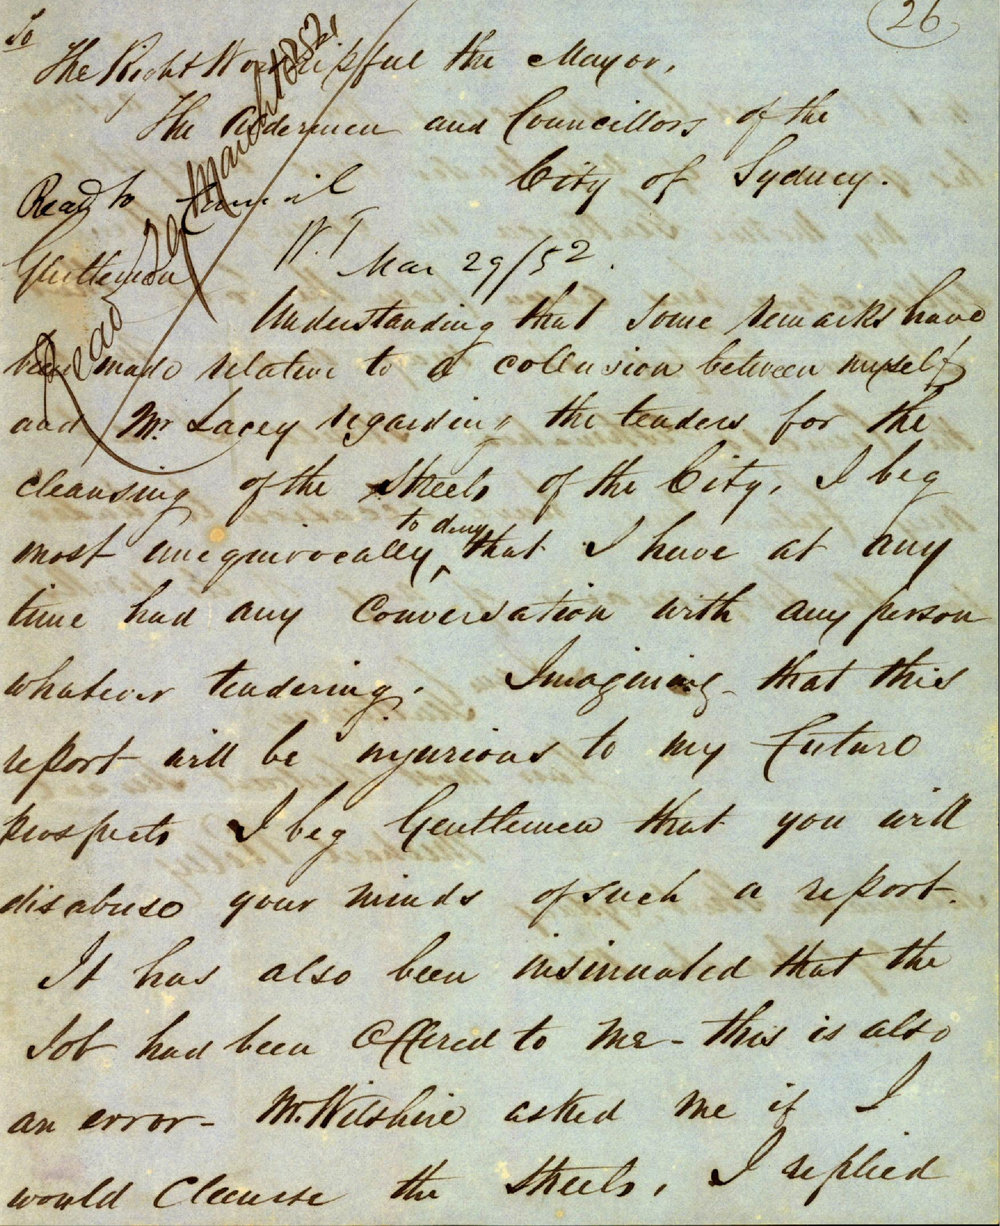 26
To
The Right Worshipful the Mayor,
The Aldermen and Councillors of the
City of Sydney.
Read to Council
W. T
Mar 29/52.
Read 29 March 1852,
Gentlemen
Understanding that some remarks have
been made relative to a collusion between myself
and Mr. Lacey regarding the tenders for the
cleansing of the Streets of the City, I beg
to deny
most unequivocally, that I have at any
time had any Conversation with any person
whatever tendering. Imagining that this
report will be injurious to my Future
prospects I beg Gentlemen that you will
disabuse your minds of such a report.
It has also been insinuated that the
Job had been Offered to me - this is also
an error - Mr. Wilshire asked me if I
would Cleanse the Streets, I replied